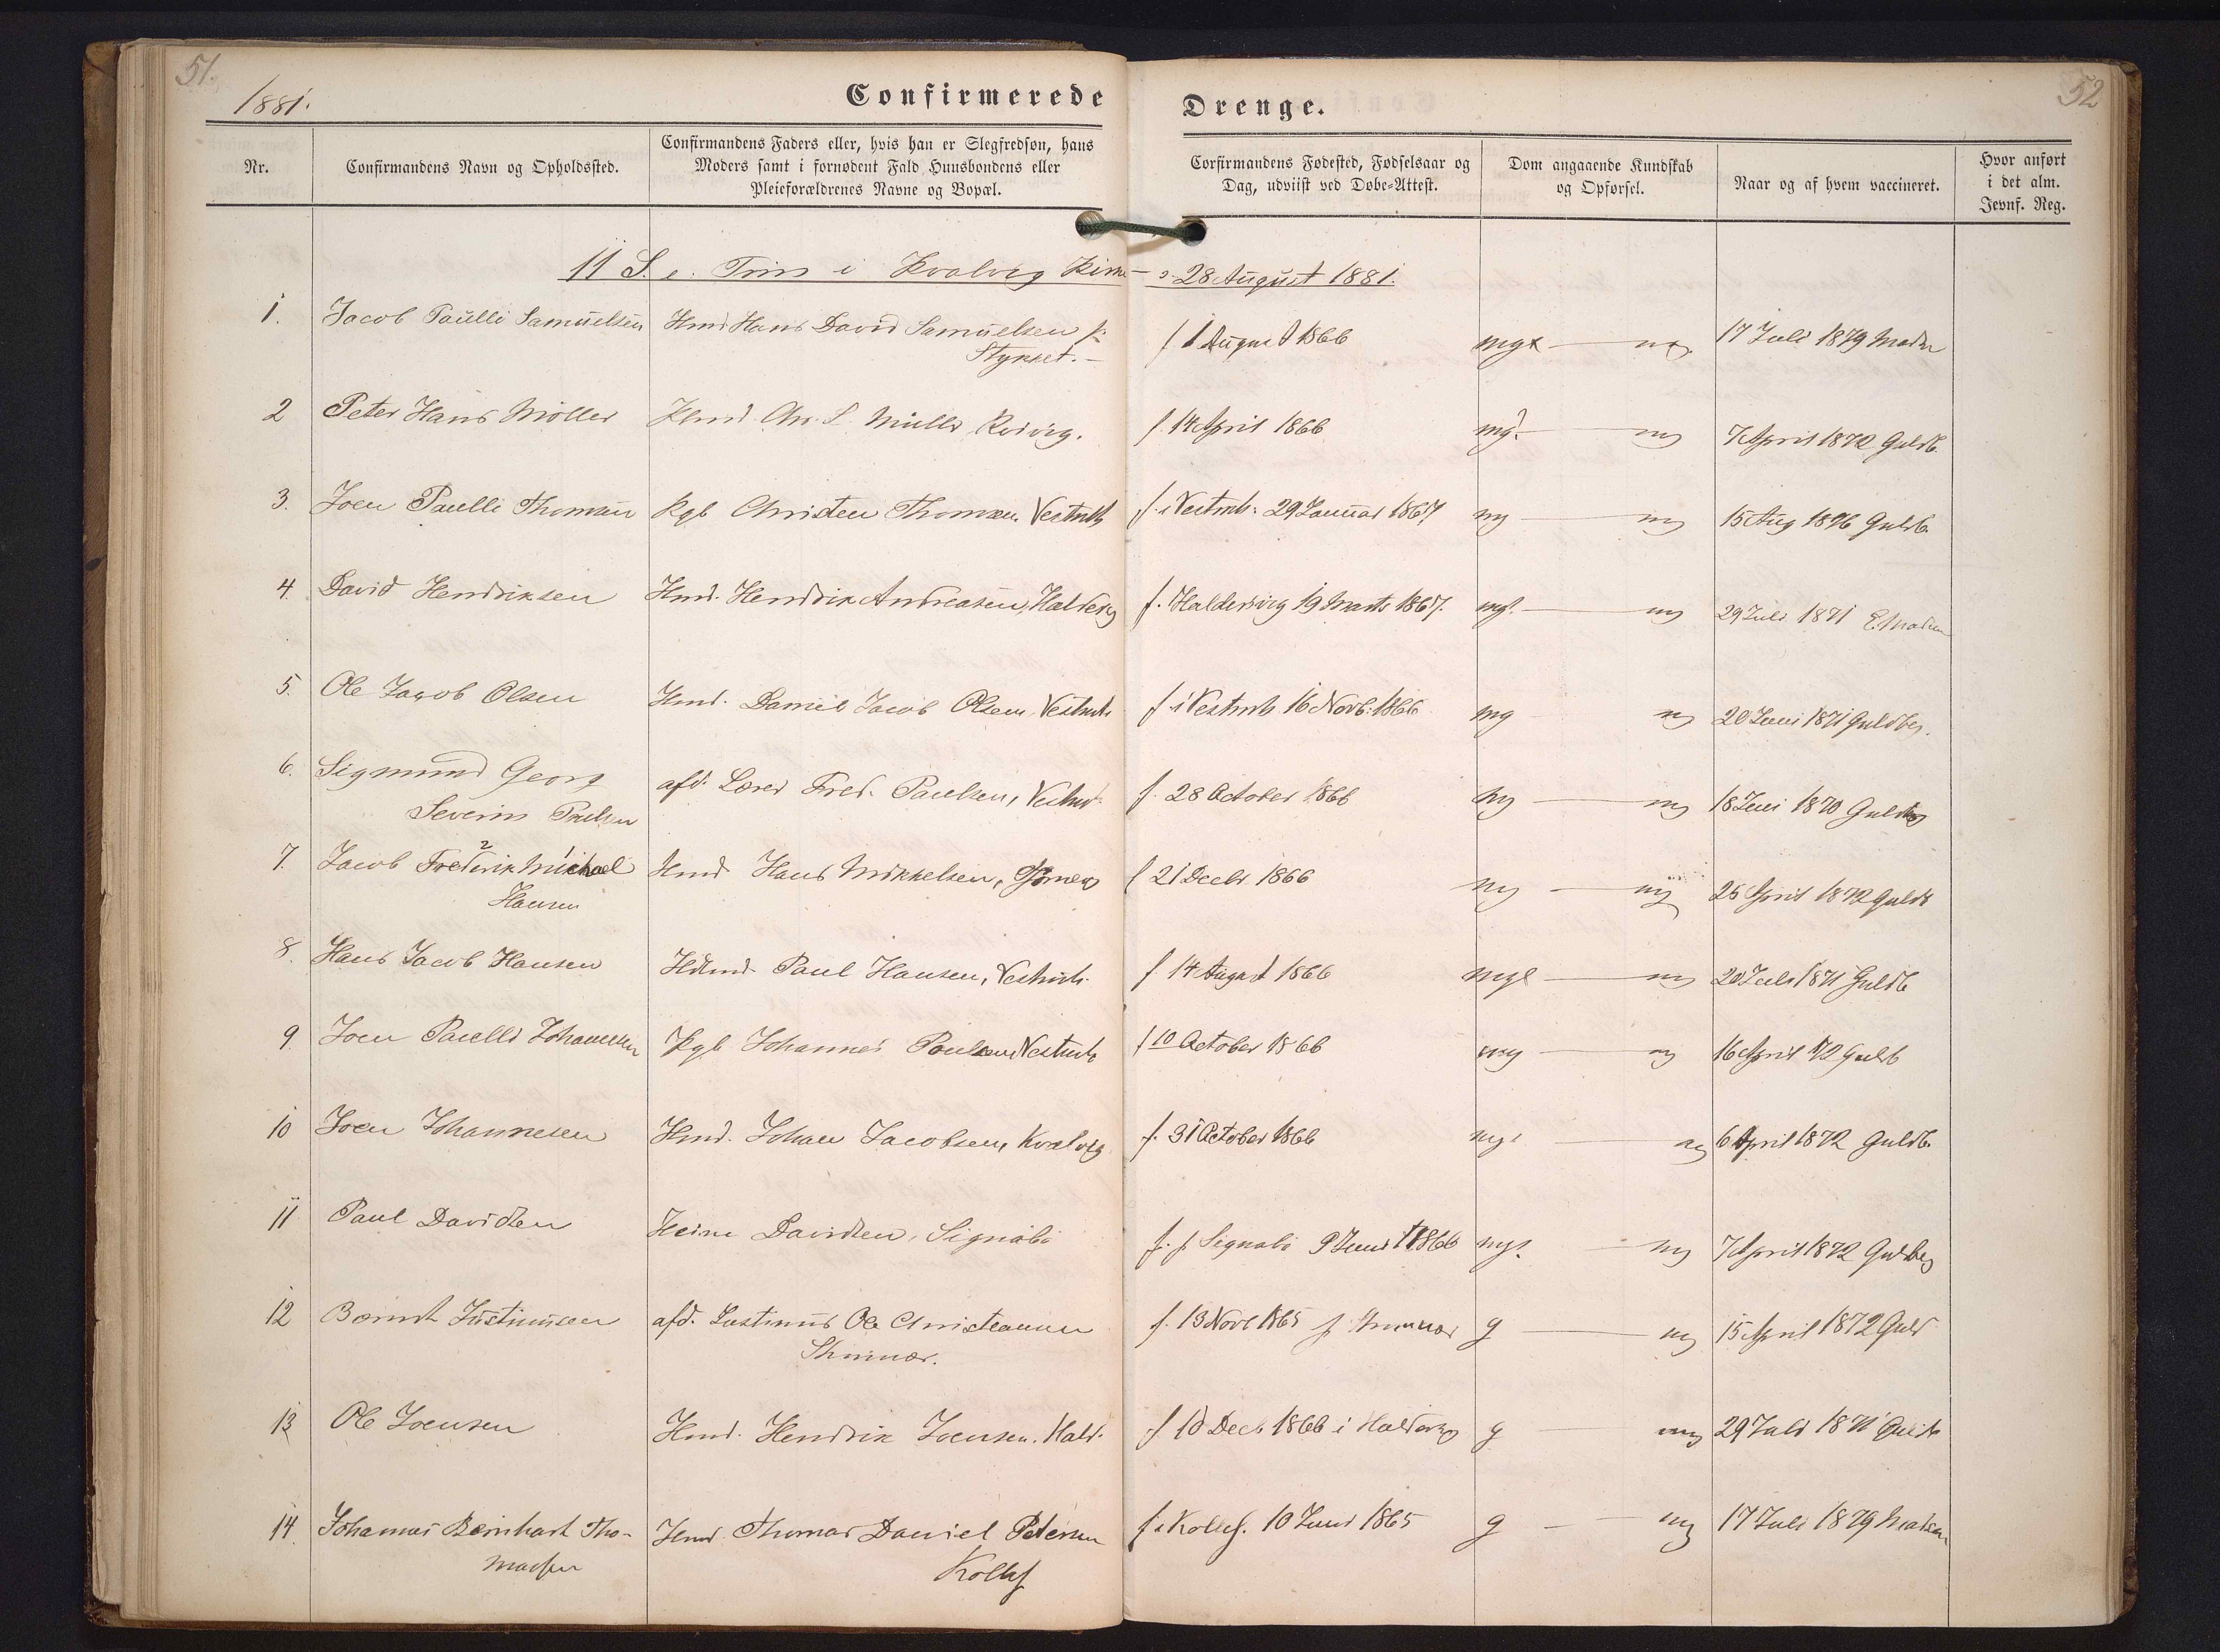 51.
1881.
Confirmerede
Drenge.
52
Nr.
Confirmandens Navn og Opholdssted.
Confirmandens Faders eller, hvis han er Slegfredsøn, hans
Moders samt i fornødent Fald Huusbondens eller
Pleieforældrenes Navne og Bopæl.
Corfirmandens Fødested, Fødselsaar og
Dag, udviist ved Døbe-Attest.
Dom angaaende Kundskab
og Opførsel.
Naar og af hvem vaccineret.
Hvor anført
i det alm.
Jevnf. Reg.
11 S. e. Trin i Kvalvig Kirke 28 August 1881.
1. Jacob Paulli Samuelsen Hmd Hans David Samuelsen
Stykket.
f 1 August 1866 mg 17 Juli 1879
2 Peter Hans Möller Chr. S. Müller f. 14 April 1866 mg. mg 7 April 1872 Guldb.
3. Joen Paulli Thomsen Kgb Christen Thomsen, Vestmh f. i Vestmh: 29 Januar 1867 mg mg 15 Aug 1876 Guldb.
4. David Hendriksen Hmd. Hendrik Andreasen, Haldervg f. Haldersvig 19 Marts 1867. mg mg 29 Juli 1871 E. Madsen
5. Ole Jacob Olsen Hmd. Daniel Jacob Olsen, Vestmh f. i Vestmh 16 Novb: 1866 mg mg 20 Juni 1871 Guldbg.
6. Sigmund Georg
Severin Poulsen
afd. Lærer Fred. Paulsen, Vestmh. f. 28 October 1866 mg mg 18 Juni 1870 Guldbg
7. Jacob Frederik Michael
2 1
Hansen
Hmd Hans Mikkelsen, f 21 Decbr 1866 mg mg 25 April 1872 Guldb
8. Hans Jacob Hansen Paul Hansen, Vestmh. f 14 August 1866 mg 20 Juli 1871 Guldb
9. Joen Paulli Johannesen Kgb Johannes Poulsen Vestmh f 10 October 1866 mg mg 16 April 72 Guldb
10 Joen Johannesen Hmd. Johan Jacobsen, Kvalvig f. 31 October 1866 mg mg 6 April 1872 Guldb.
11 Paul Davidsen Heine Davidsen, Signabö f. Signabö 9 Juni 1866 mg 7 April 1872 Guldbg
12 Bærndt Justinussen afd. Justinus Ole Christiansen
f. 13 Novb 1865 g mg 15 April 1872 Guld
13 Ole Joensen Hmd. Hendrik Joensen. Hald. f 10 Decb 1866 i Haldervg g mg 29 Juli 1871 Guldb
14. Johannes Bernhart Tho-
masen
Hmd Thomas Daniel Petersen
Kollef
f i Kollef. 10 Juni 1865 g mg 17 Juli 1879 Madsen